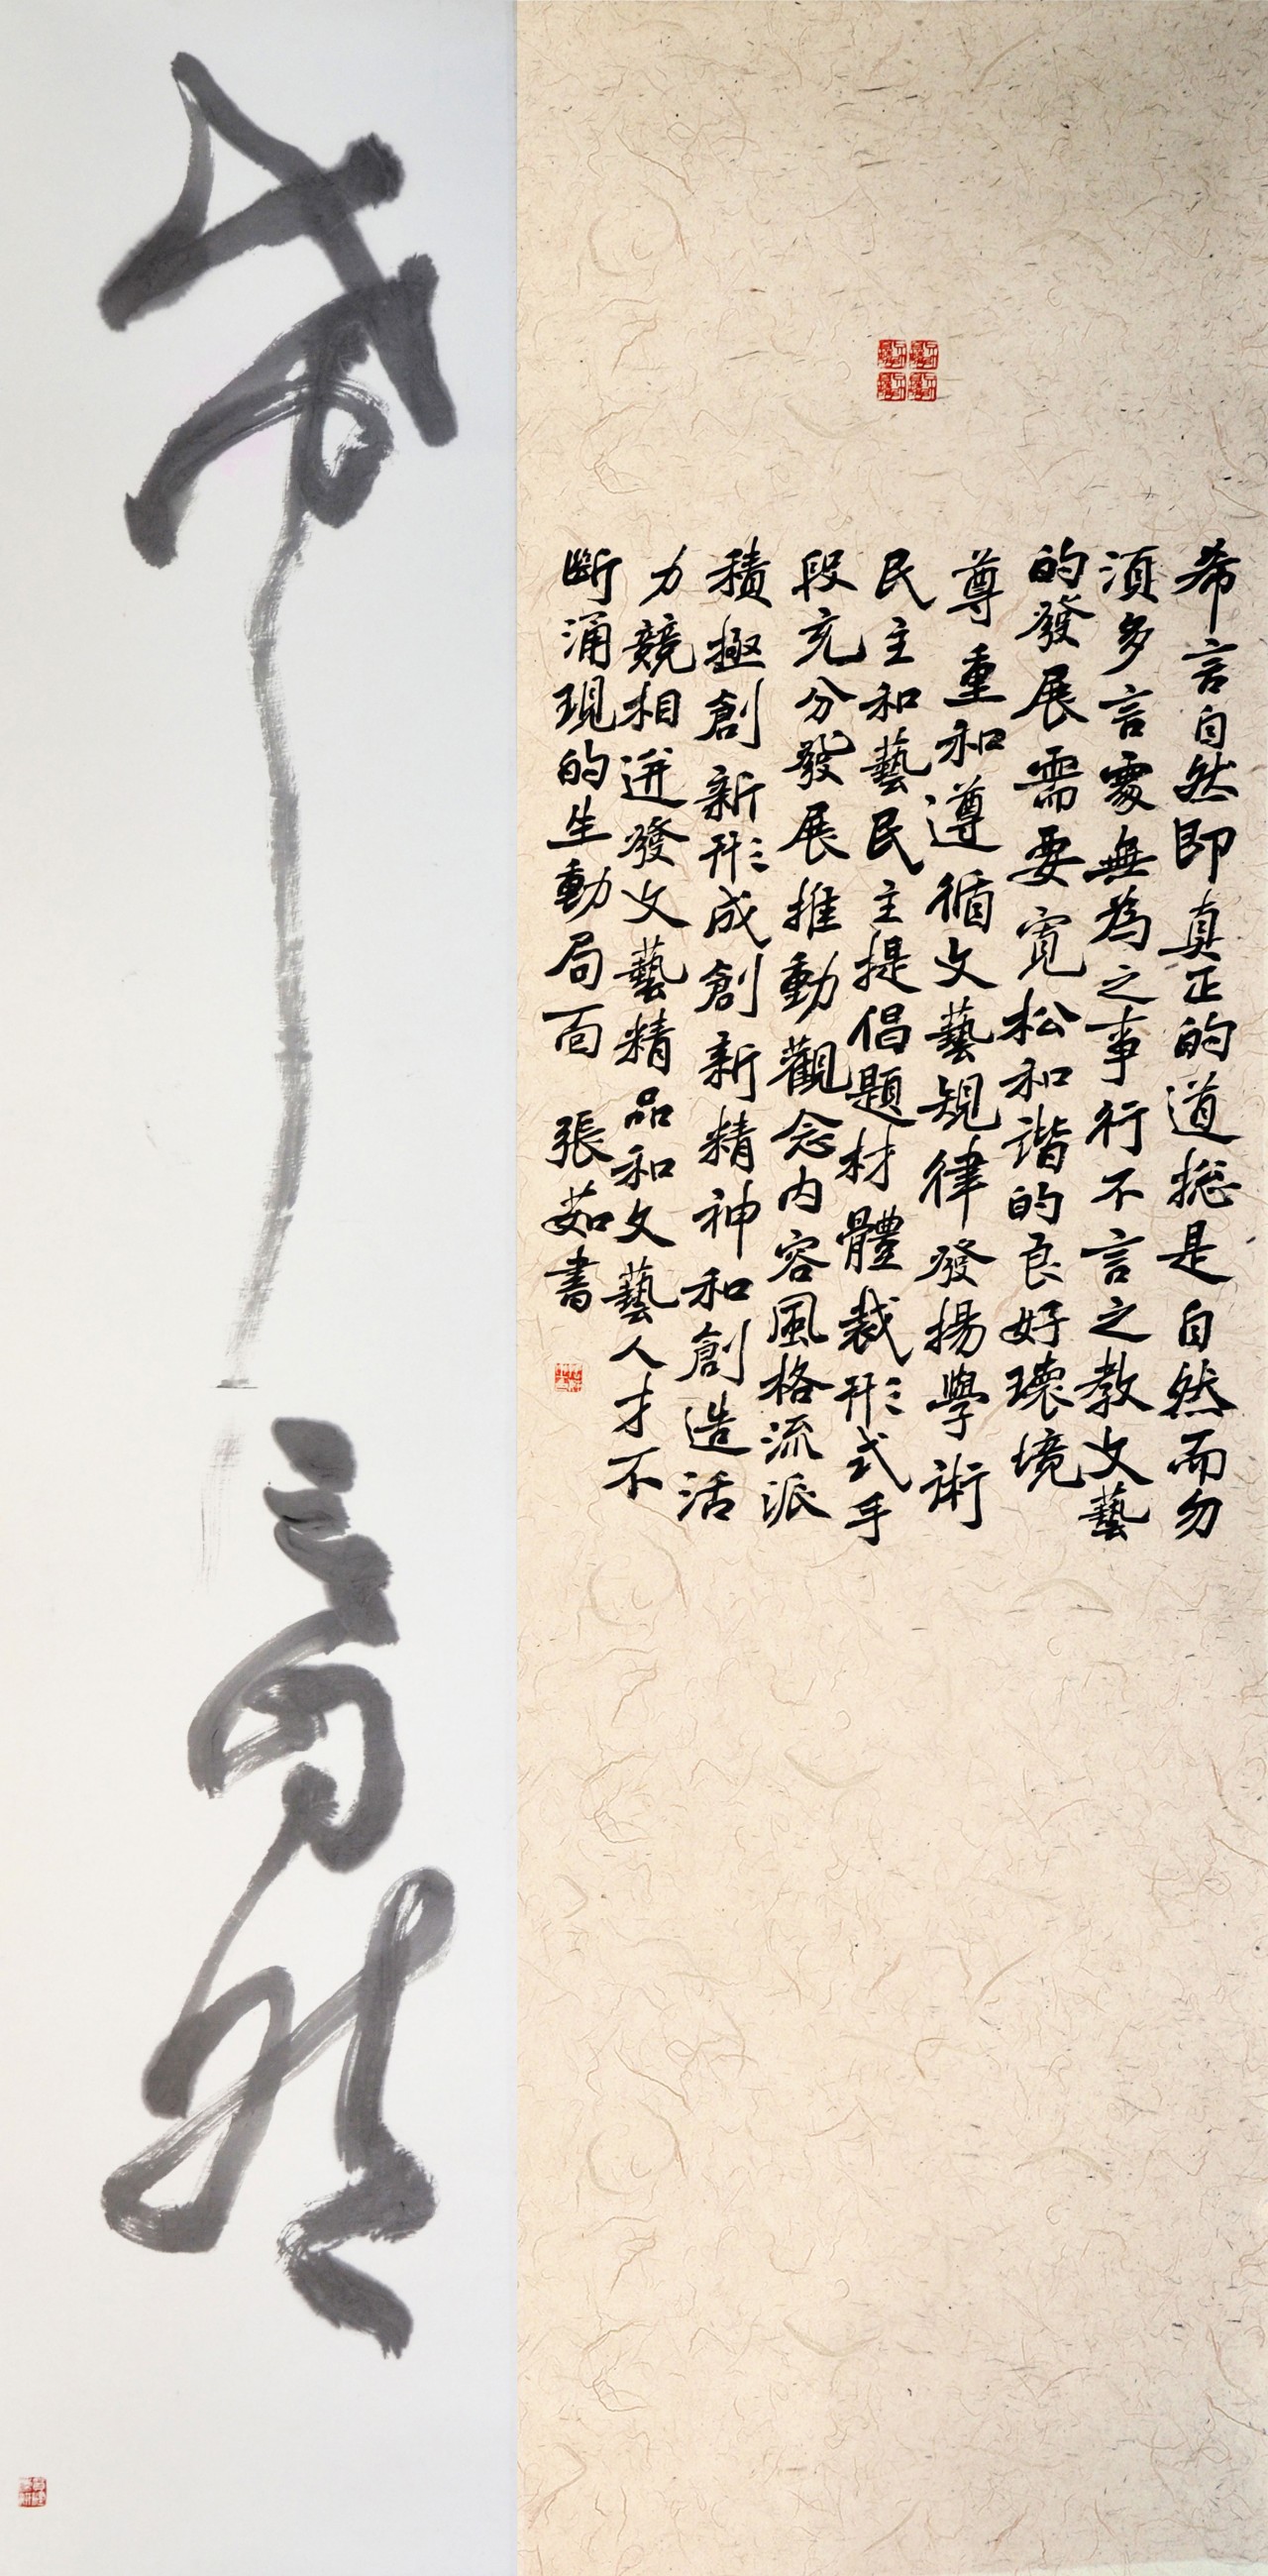 希言自然即真正的道総是自然而勿
須多言處無為之事行不言之教文藝
的發展需要寬松和諧的良好環境
尊重和遵循文藝規律發揚學術
民主和藝民主提倡題材體裁形式手
段充分發展推動觀念内容風格流派
積極創新形成創新精神和創造活
力競相迸發文藝精品和文藝人才不
斷涌現的生動局面 張茹書
希言自然